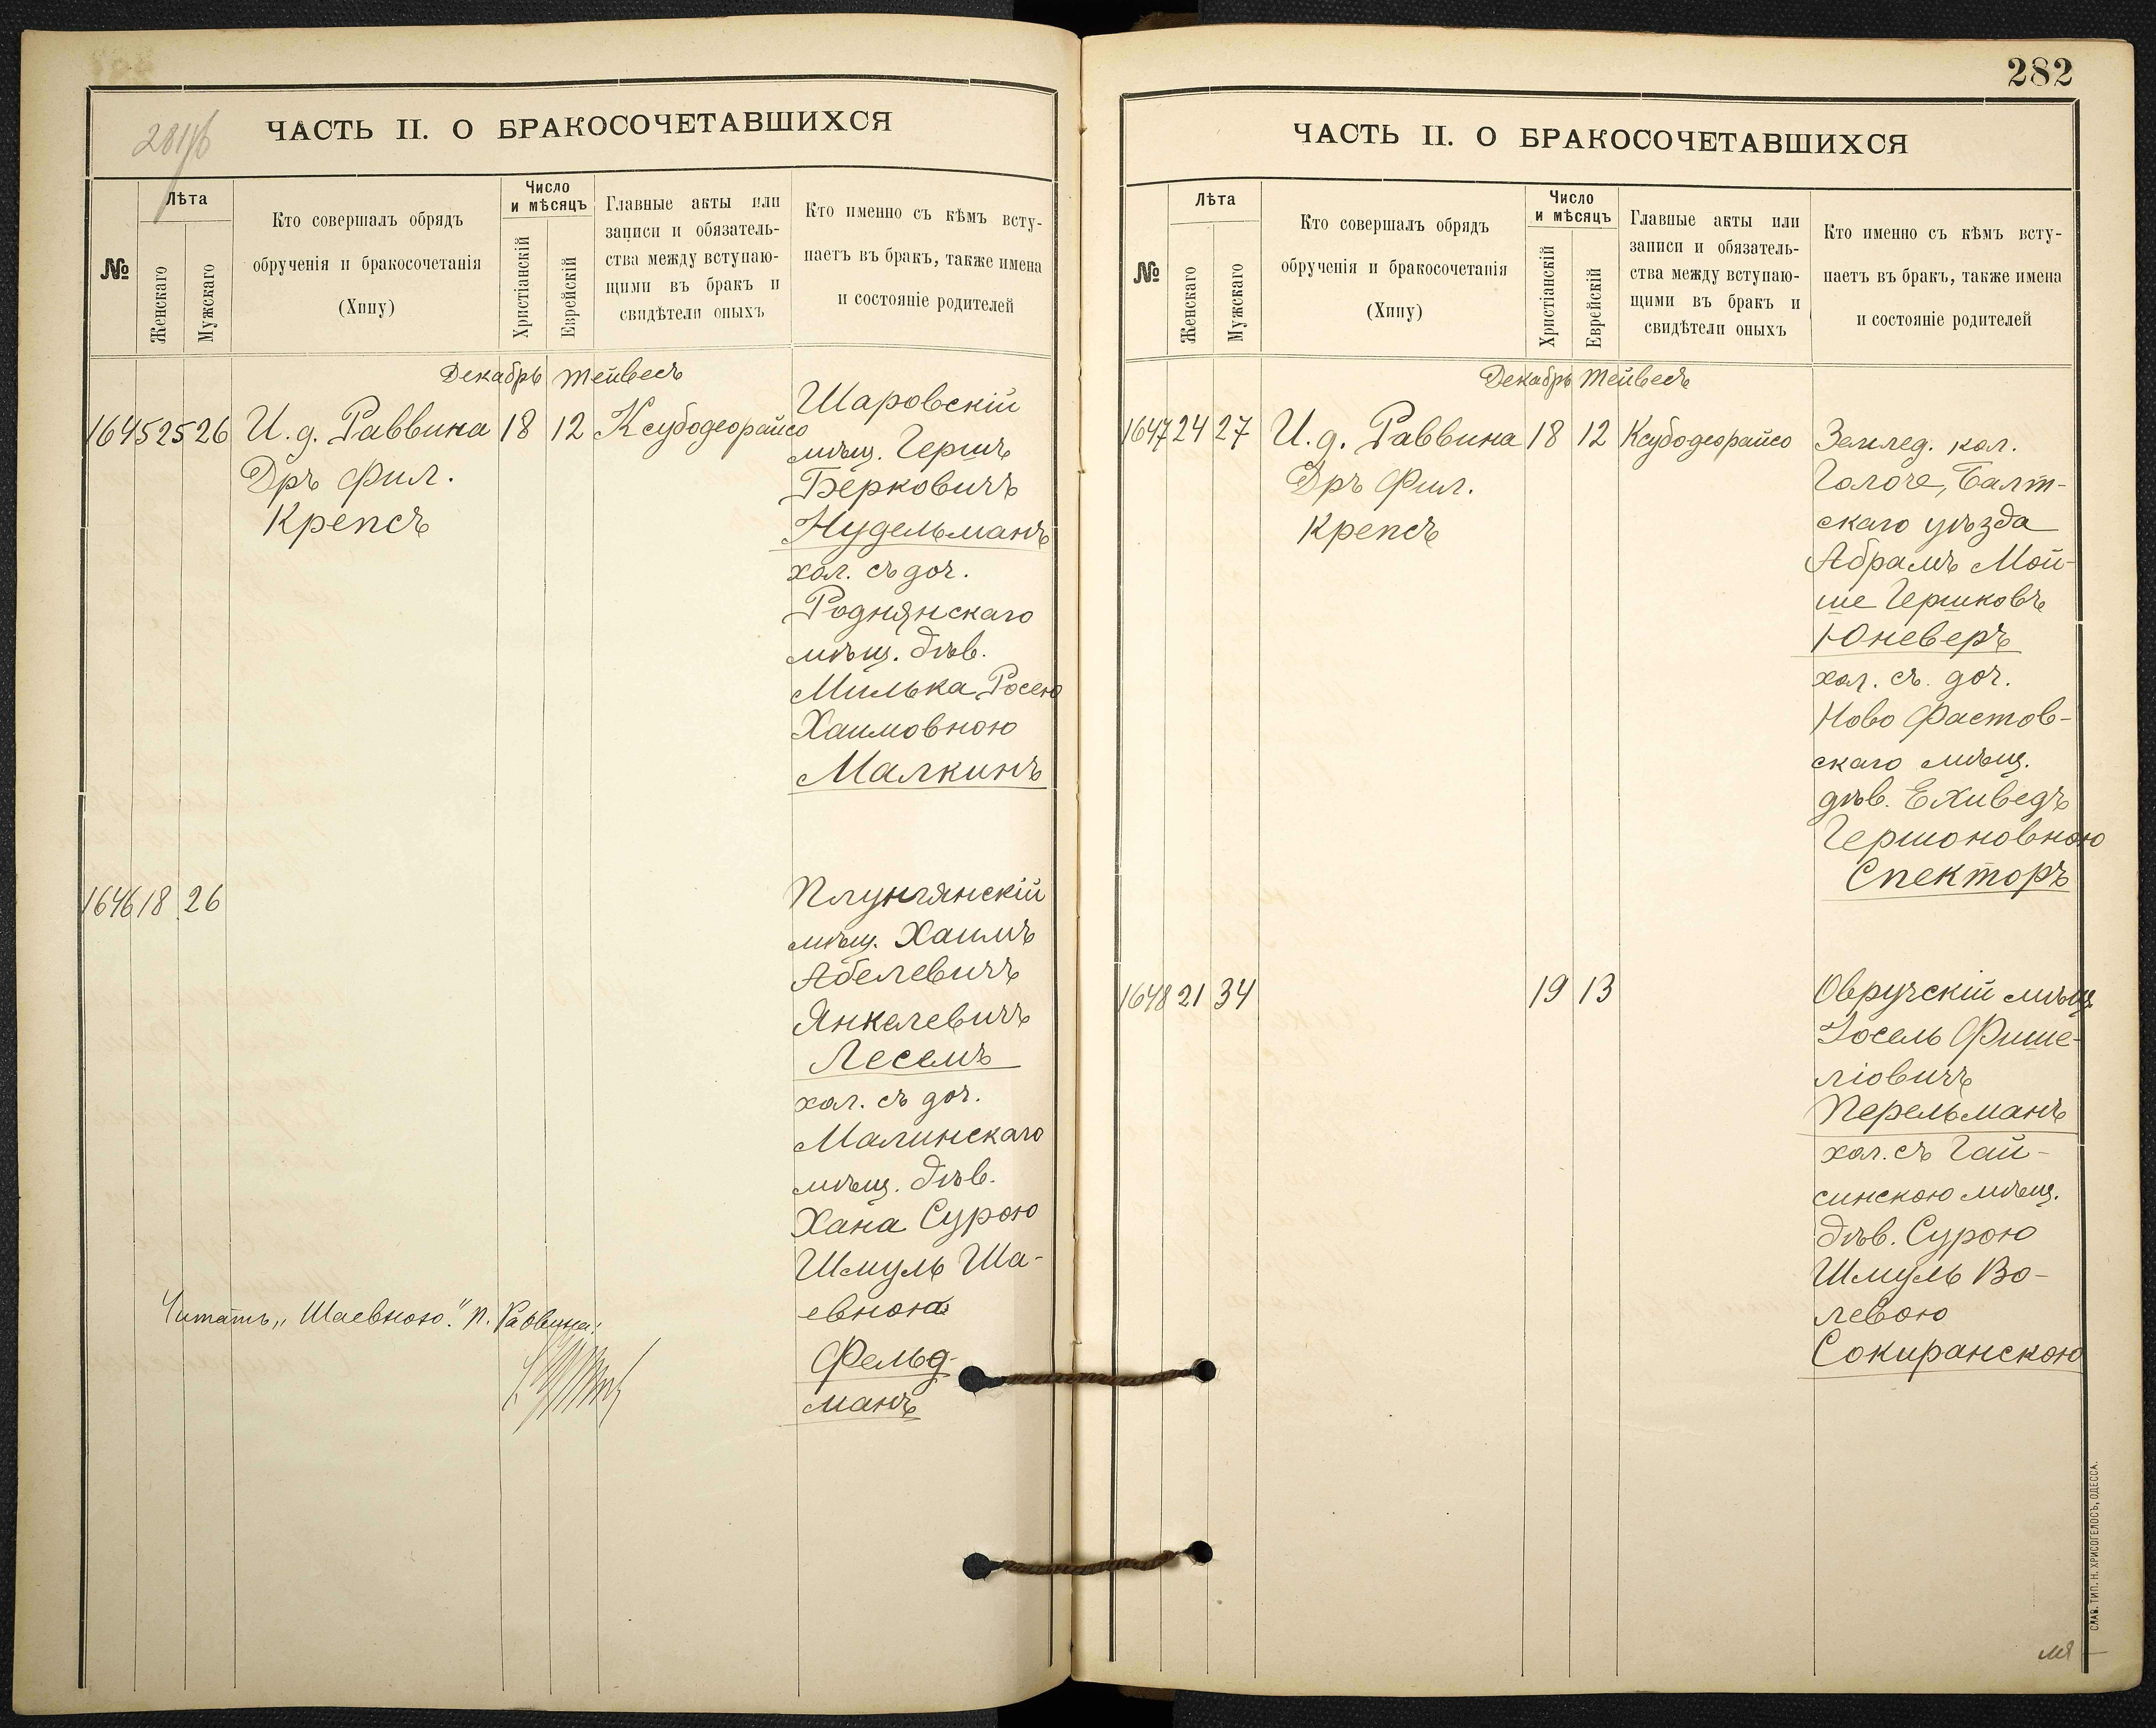 ЧАСТЬ II. О БРАКОСОЧЕТАВШИХСЯ
№
Лѣта
Женскаго
Мужскаго
Кто совершалъ обрядъ
обрученія и бракосочетанія
(Хипу)
Число
и мѣсяцъ
Христіанскій
Еврейскій
Главные акты или
записи и обязатель-
ства между вступаю-
щими въ бракъ и
свидѣтели оныхъ
Кто именно съ кѣмъ всту-
паетъ въ бракъ, также имена
и состояніе родителей
Декабрь Тейвесъ
1645 25 26 И. д. Раввина 18 12 Ксубодеорайсо
Дръ Фил.
Крепсъ
Шаровскій
мѣщ. Гершъ
Берковичъ
Нудельманъ
хол. съ доч.
Роднянскаго
мѣщ. дѣв.
Милька Росею
Хаимовною
Малкинъ
1646 18 26
Плунгянскій
мѣщ. Хаимъ
Абелевичъ
Янкелевичъ
Лесемъ
хол. съ доч.
Малинскаго
мѣщ. дѣв.
Хана Сурою
Шмуль Ша-
евною
Фельд-
манъ
Читать „Шаевною." И. Раввина:
282
ЧАСТЬ II. О БРАКОСОЧЕТАВШИХСЯ
№
Лѣта
Женскаго
Мужскаго
Кто совершалъ обрядъ
обрученія и бракосочетанія
(Хипу)
Число
и мѣсяцъ
Христіанскій
Еврейскій
Главные акты или
записи и обязатель-
ства между вступаю-
щими въ бракъ и
свидѣтели оныхъ
Кто именно съ кѣмъ всту-
паетъ въ бракъ, также имена
и состояніе родителей
Декабрь Тейвесъ
1647 24 27 И. д. Раввина 18 12 Ксубодеорайсо
Дръ Фил.
Крепсъ
Землед. кол.
Голоче, Балт-
скаго уѣзда
Абрамъ Мой-
ше Гершковъ
Юневеръ
хол. съ доч.
Ново Фастов-
скаго мѣщ.
дѣв. Ехиведъ
Гершоновною
Спекторъ
1648 21 34 19 13
Овручскій мѣщ
Іосель Фише-
ліовичъ
Перельманъ
хол. съ Гай-
синскою мѣщ.
дѣв. Сурою
Шмуль Во-
левою
Сокиранскою
СЛАВ. ТИП. Н. ХРИСОГЕЛОСЪ, ОДЕССА.